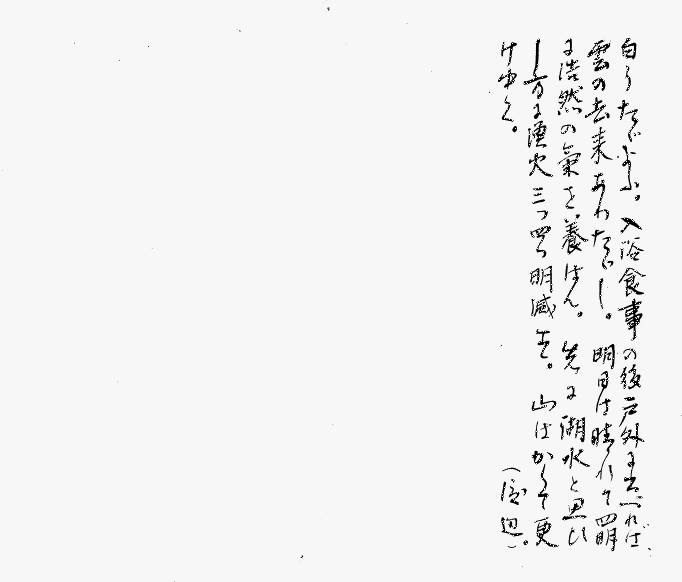 白うたゞよふ。入浴食事の後戸外に立てれば、
雲の去来あわたゞし。明日は晴れて四明
に浩然の氣を養はん。先に湖水と思ひ
し方に漁火三つ四つ明滅す。山はかくて更
けゆく。(渡辺)。